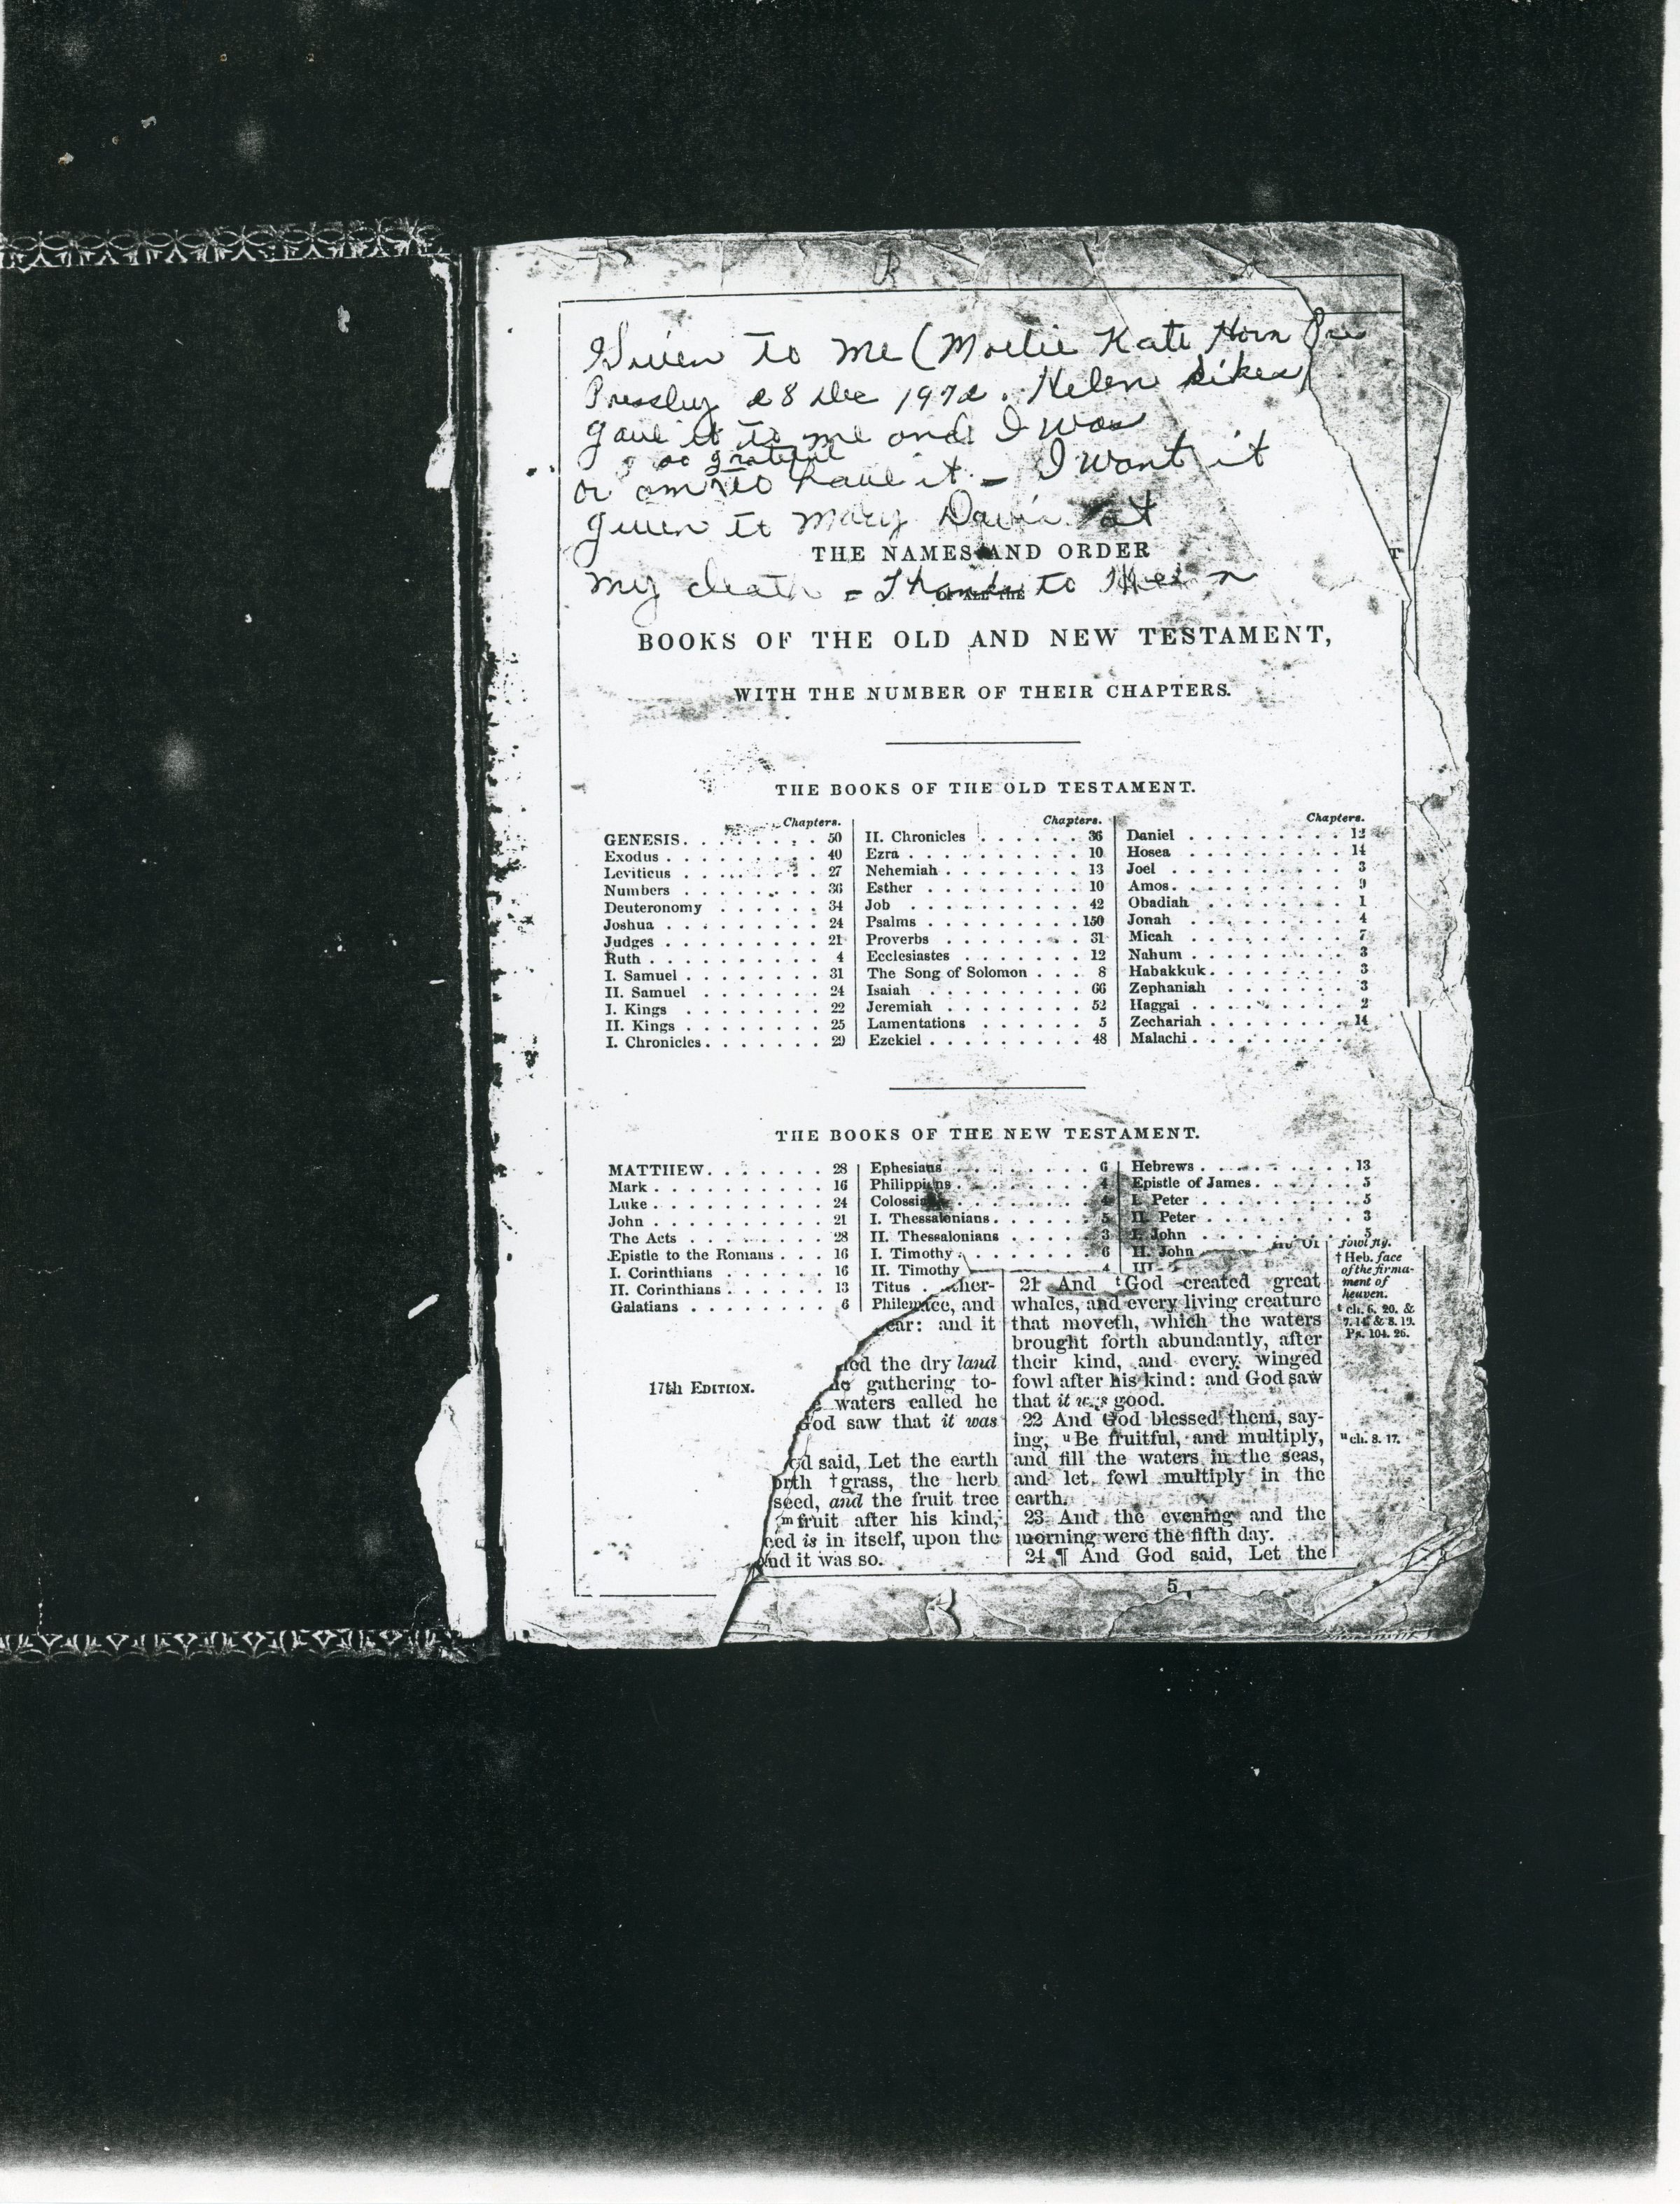 Given to me (Mollie Kate Horn
Pressley 28 Dec 1972. Helen Sikes
gave it to me and I was
so grateful
or am to have it - I want it
given to Mary Davis at
THE NAMES AND ORDER
my death - Thanks to Helen
OF ALL THE
BOOKS OF THE OLD AND NEW TESTAMENT,
WITH THE NUMBER OF THEIR CHAPTERS.
THE BOOKS OF THE OLD TESTAMENT.
Chapters.
GENESIS. . . . . . . . . 50
Exodus . . . . . . . . . 40
Leviticus . . . . . . . . 27
Numbers . . . . . . . . 36
Deuteronomy . . . . . . 34
Joshua . . . . . . . . . 24
Judges . . . . . . . . . 21
Ruth . . . . . . . . . . 4
I. Samuel . . . . . . . . 31
II. Samuel . . . . . . . 24
I. Kings . . . . . . . . 22
II. Kings . . . . . . . . 25
I. Chronicles . . . . . . . 29
Chapters.
II. Chronicles . . . . . . 36
Ezra . . . . . . . . . . 10
Nehemiah . . . . . . . . 13
Esther . . . . . . . . . 10
Job . . . . . . . . . . 42
Psalms . . . . . . . . . 150
Proverbs . . . . . . . . 31
Ecclesiastes . . . . . . . 12
The Song of Solomon . . . 8
Isaiah . . . . . . . . . 66
Jeremiah . . . . . . . . 52
Lamentations . . . . . . 5
Ezekiel . . . . . . . . . 48
Chapters.
Daniel . . . . . . . . . 12
Hosea . . . . . . . . . 14
Joel . . . . . . . . . . 3
Amos . . . . . . . . . . 9
Obadiah . . . . . . . . 1
Jonah . . . . . . . . . 4
Micah . . . . . . . . . 7
Nahum . . . . . . . . . 3
Habakkuk . . . . . . . . 3
Zephaniah . . . . . . . 3
Haggai . . . . . . . . . 2
Zechariah . . . . . . . . 14
Malachi . . . . . . . .
THE BOOKS OF THE NEW TESTAMENT.
MATTHEW. . . . . . . . 28
Mark . . . . . . . . . . 16
Luke . . . . . . . . . . 24
John . . . . . . . . . . 21
The Acts . . . . . . . . 28
Epistle to the Romans . . . 16
I. Corinthians . . . . . . 16
II. Corinthians . . . . . . 13
Galatians . . . . . . . . 6
Ephesians . . . . . . . . 6
Philippians . . . . . . . 4
Colossians . . . . . . . 4
I. Thessalonians . . . . . 5
II. Thessalonians . . . . . 3
I. Timothy . . . . . . . 6
II. Timothy 4
Titus
Philem
Hebrews . . . . . . . . . 13
Epistle of James . . . . . . 5
I. Peter . . . . . . . . . 5
II. Peter . . . . . . . . 3
I. John . . . . . . . . . 5
II. John
III.
17th EDITION.
ther-
ce, and
ear: and it
led the dry land
gathering to-
waters called he
God saw that it was
od said, Let the earth
orth † grass, the herb
seed, and the fruit tree
m fruit after his kind,
eed is in itself, upon the
and it was so.
21 And t God created great
whales, and every living creature
that moveth, which the waters
brought forth abundantly, after
their kind, and every winged
fowl after his kind: and God saw
that it was good.
22 And God blessed them, say-
ing, u Be fruitful, and multiply,
and fill the waters in the seas,
and let fowl multiply in the
earth.
23 And the evening and the
morning were the fifth day.
24 ¶ And God said, Let the
fowl fly.
† Heb. face
of the firma-
ment of
heaven.
t ch. 6. 20. &
7. 14. & 8. 19.
Ps. 104. 26.
u ch. 8. 17.
5